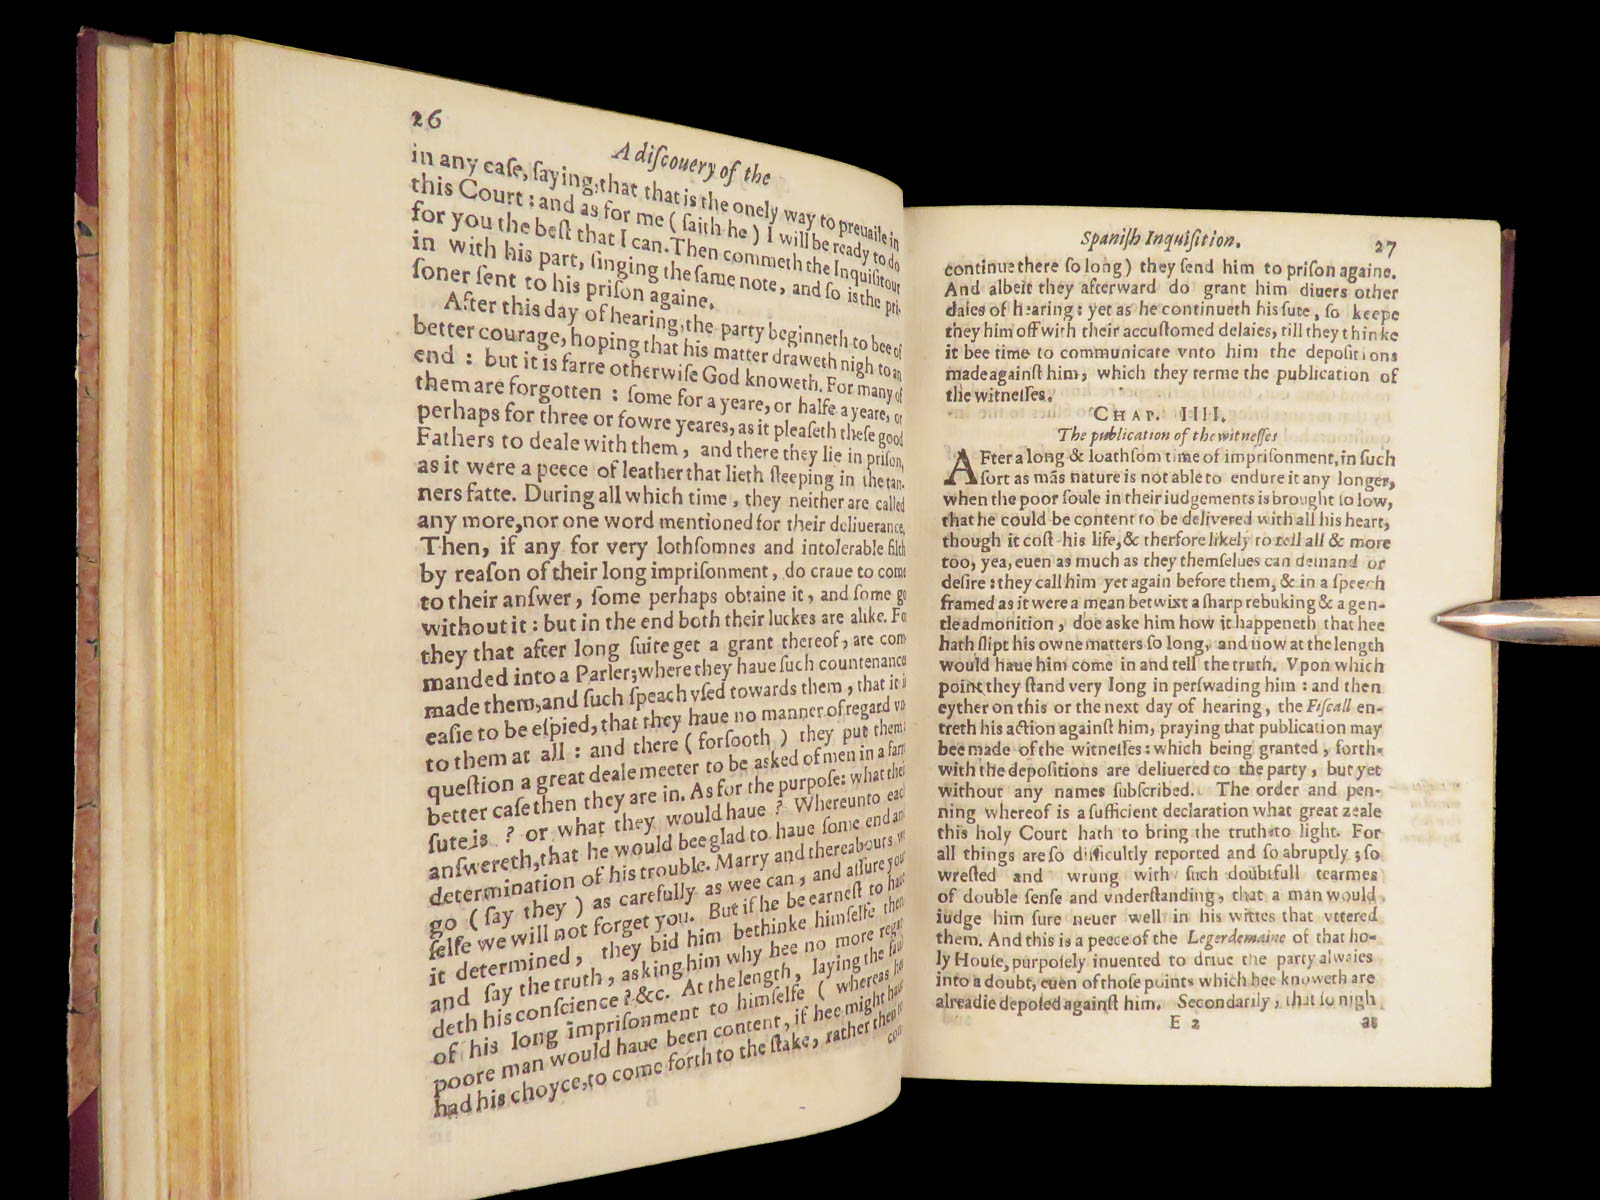 26
A diſcouery of the
in any caſe, ſaying, that that is the onely way to preuaile in
this Court : and as for me ( ſaith he ) I will be ready to do
for you the beſt that I can. Then commeth the Inquiſitour
in with his part, ſinging the ſame note, and ſo is the pri-
ſoner ſent to his priſon againe.
After this day of hearing, the party beginneth to bee of
better courage, hoping that his matter draweth nigh to an
end : but it is farre otherwiſe God knoweth. For many of
them are forgotten : ſome for a yeare, or halfe a yeare, or
perhaps for three or fowre yeares, as it pleaſeth theſe good
Fathers to deale with them , and there they lie in priſon,
as it were a peece of leather that lieth ſteeping in the tan-
ners fatte. During all which time , they neither are called
any more, nor one word mentioned for their deliuerance,
Then, if any for very lothſomnes and intolerable filth
by reaſon of their long impriſonment , do craue to come
to their anſwer , ſome perhaps obtaine it , and ſome go
without it : but in the end both their luckes are alike. Fo
they that after long ſuite get a grant thereof , are com
manded into a Parler; where they haue ſuch countenance
made them, and ſuch ſpeach vſed towards them , that it i
eaſie to be eſpied, that they haue no manner of regard vn
to them at all : and there ( forſooth ) they put them
queſtion a great deale meeter to be asked of men in a farr
better caſe then they are in. As for the purpoſe: what thei
ſute is ? or what they would haue ? Whereunto eac
anſwereth, that he would bee glad to haue ſome end an
determination of his trouble. Marry and thereabours w
go ( ſay they ) as carefully as wee can , and aſſure you
ſelfe we will not forget you. But if he be earneſt to haue
it determined , they bid him bethinke himſelfe then
and ſay the truth , asking him why hee no more regar
deth his conſcience ? &c. At the length , laying the faul
of his long impriſonment to himſelfe ( whereas he
poore man would haue been content, if hee might haue
had his choyce, to come forth to the ſtake, rather then to
con
Spaniſh Inquiſition. 27
continue there ſo long) they ſend him to priſon againe.
And albeit they afterward do grant him diuers other
daies of hearing : yet as he continueth his ſute , ſo keepe
they him off with their accuſtomed delaies, till they thinke
it bee time to communicate vnto him the depoſitions
made againſt him, which they terme the publication of
the witneſſes.
CHAP. IIII.
The publication of the witneſſes
AFter a long & loathſom time of impriſonment, in ſuch
ſort as mãs nature is not able to endure it any longer,
when the poor ſoule in their iudgements is brought ſo low,
that he could be content to be delivered with all his heart,
though it coſt his life, & therfore likely to tell all & more
too, yea, euen as much as they themſelues can demand or
deſire : they call him yet again before them, & in a ſpeech
framed as it were a mean betwixt a ſharp rebuking & a gen-
tle admonition , doe aske him how it happeneth that hee
hath ſlipt his owne matters ſo long, and now at the length
would haue him come in and tell the truth. Vpon which
point they ſtand very long in perſwading him : and then
eyther on this or the next day of hearing , the Fiſcall en-
treth his action againſt him, praying that publication may
bee made of the witneſſes : which being granted , forth-
with the depoſitions are deliuered to the party , but yet
without any names ſubſcribed. The order and pen-
ning whereof is a ſufficient declaration what great zeale
this holy Court hath to bring the truth to light. For
all things are ſo difficultly reported and ſo abruptly ; ſo
wreſted and wrung with ſuch doubtfull tearmes
of double ſenſe and vnderſtanding , that a man would
iudge him ſure neuer well in his wittes that vttered
them. And this is a peece of the Legerdemaine of that ho-
ly Houſe, purpoſely inuented to driue the party alwaies
into a doubt, euen of thoſe points which hee knoweth are
alreadie depoſed againſt him. Secondarily , that ſo nigh
E 2 as